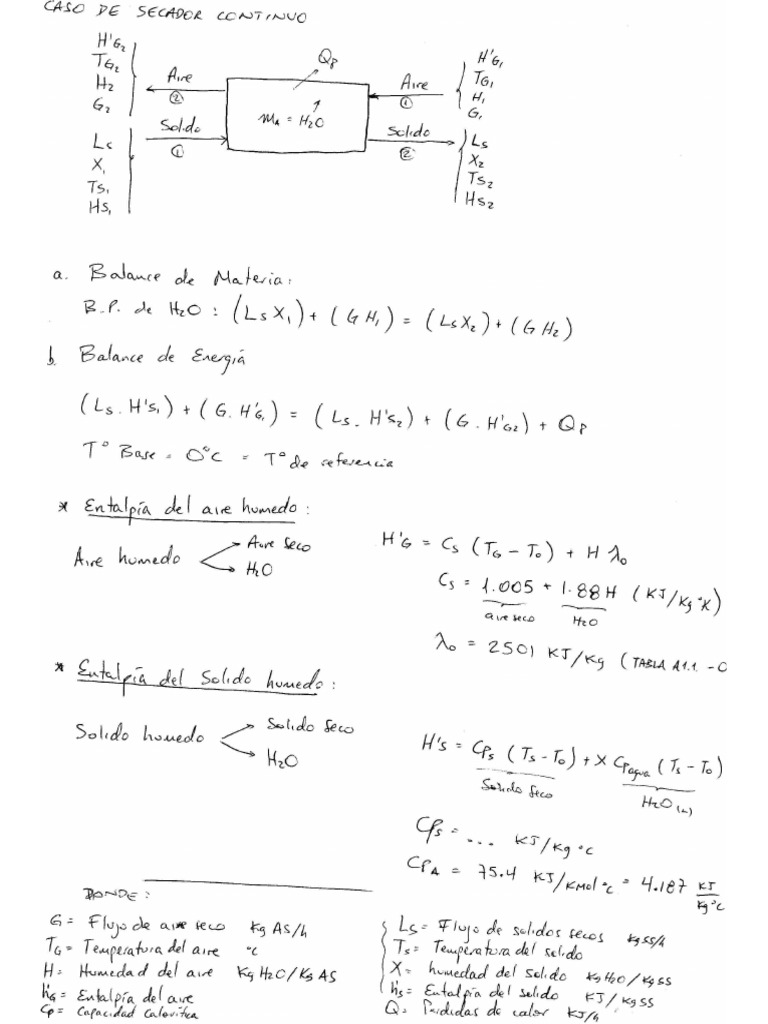 CASO DE SECADOR CONTINUO
H'G2
TG2
H2
G2
Aire
②
Qp
mA = H2O
Aire
①
H'G1
TG1
H1
G1
Ls
X1
Ts1
Hs1
Solido
①
Solido
②
Ls
X2
Ts2
Hs2
a. Balance de Materia:
B.P. de H2O : (Ls X1) + (G H1) = (Ls X2) + (G H2)
b. Balance de Energía
(Ls . H's1) + (G . H'G1) = (Ls . H's2) + (G . H'G2) + Qp
T° Base = 0°C = T° de referencia
* Entalpía del aire humedo :
Aire humedo
Aire seco
H2O
H'G = Cs (TG - To) + H λo
Cs = 1.005 + 1.88 H (KJ/Kg °K)
aire seco
H2O
λo = 2501 KJ/Kg (TABLA A1.1. -C
* Entalpía del Solido humedo :
Solido humedo
Solido seco
H2O
H's = Cps (Ts - To) + X Cpagua (Ts - To)
Solido seco
H2O (L)
Cps = ... KJ/Kg °C
CPA = 75.4 KJ/Kmol °C = 4.187 KJ/Kg°C
DONDE :
G = Flujo de aire seco Kg AS/h
TG = Temperatura del aire °C
H = Humedad del aire Kg H2O/Kg AS
h'G = Entalpía del aire
Cp = Capacidad Calorifica
Ls = Flujo de solidos secos Kg SS/h
Ts = Temperatura del solido
X = humedad del solido Kg H2O/Kg SS
h's = Entalpía del solido KJ/Kg SS
Q = Perdidas de calor KJ/h